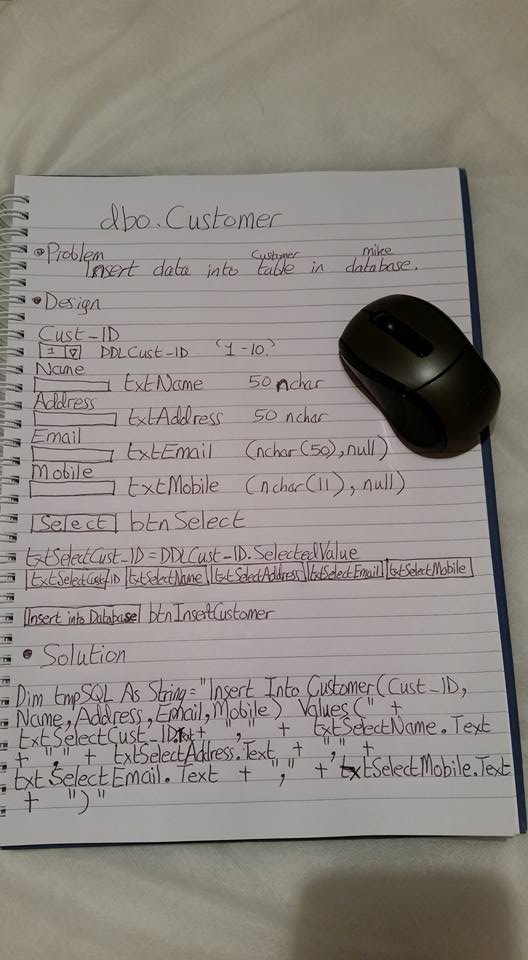 dbo.Customer
• Problem
Insert data into Customer table in mike database.
• Design
Cust-ID
1 DDLCust-ID '1-10'
Name
txtName 50 nchar
Address
txtAddress 50 nchar
Email
txtEmail (nchar(50), null)
Mobile
txtMobile (nchar(11), null)
Select btnSelect
txtSelectCust-ID = DDLCust-ID.SelectedValue
txtSelectCust-ID txtSelectName txtSelectAddress txtSelectEmail txtSelectMobile
Insert into Database btnInsertCustomer
• Solution
Dim tmpSQL As String = "Insert Into Customer(Cust-ID,
Name, Address, Email, Mobile) Values (" +
txtSelectCust-ID + , + txtSelectName.Text
+ "," + txtSelectAddress.Text + "," +
txtSelectEmail.Text + "," + txtSelectMobile.Text
+ ")"